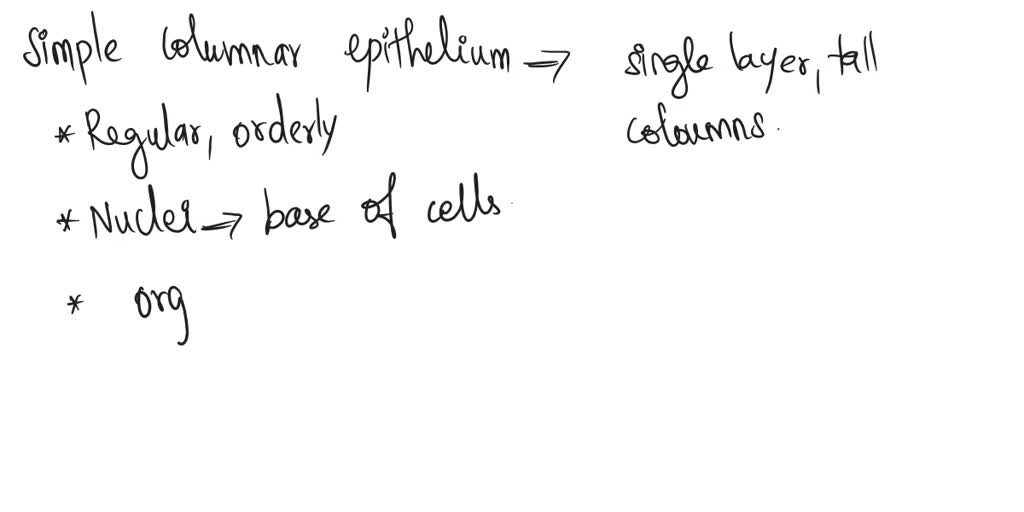 Simple columnar epithelium → single layer, tall
columns.
* Regular, orderly
* Nuclei → base of cells
* org